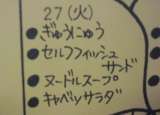 27(火)
●ぎゅうにゅう
●セルフフィッシュ
サンド
●ヌードルスープ
●キャベツサラダ